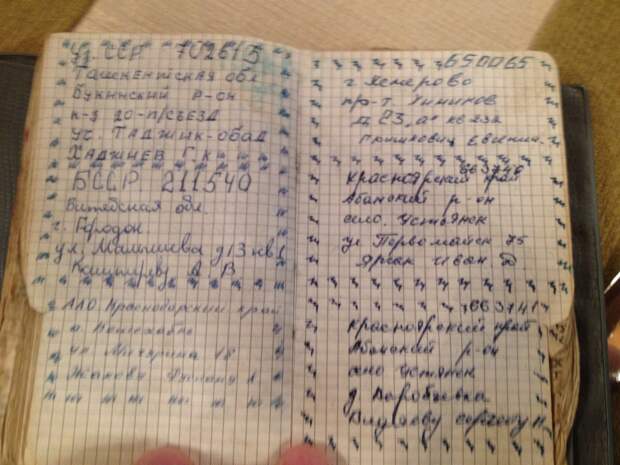 Уз. ССР 702615
Ташкентская обл
Букинский р-он
к-з 20-п/съезд
уч. Таджик-обад
Хаджиев Г.
БССР 211540
Витебская обл.
г. Городок
ул. Малышева д 13 кв 1
А В
Краснодарский край
ул Мичурина 18
650065
г Кемерово
пр-т. Химиков
д 23, а" кв
Евгении.
663740
Красноярский край
Абанский р-он
село. Устянск
ул Первомайск 75
Иван. Д
663741
Красноярский край
Абанский р-он
село Устянск
д Воробьевка
Сергею